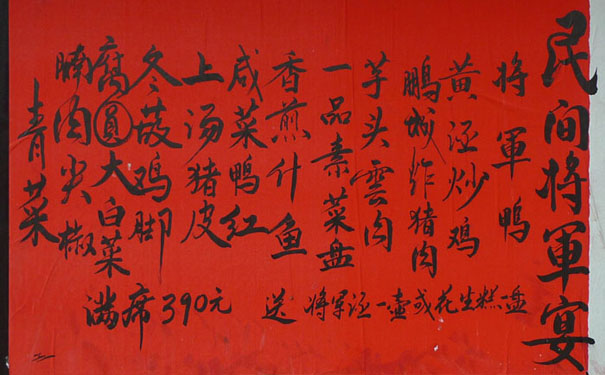 民间将軍宴
将軍鸭
黄酒炒鸡
鹏城炸猪肉
芋头雲肉
一品素菜盘
香煎什鱼
咸菜鸭红
上汤猪皮
冬菇鸡脚
腐圓大白菜
腩肉尖椒
青菜
满席390元 送 将军酒一壶或花生糕一盘